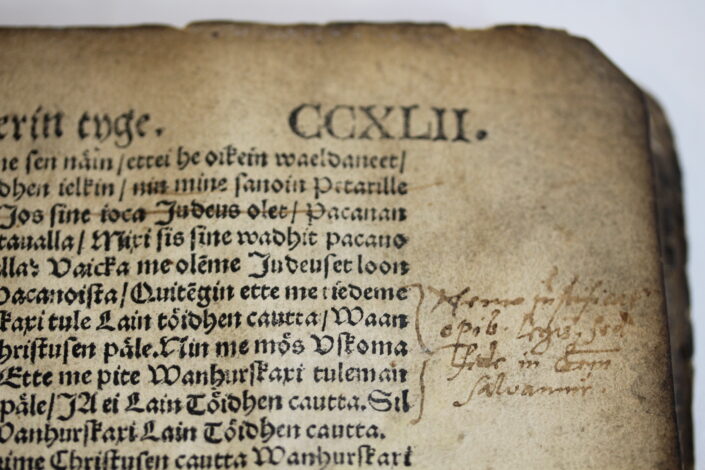 erin tyge. CCXLII.
ne sen näin/ettei he oikein waeldaneet/
dhen ielkin/nin mine sanoin Petarille
Jos sine ioca Judeus olet/Pacanan
taualla/Mixi sis sine wadhit pacano
lla? Vaicka me olẽme Judeuset loon
Pacanoista/Quitẽgin ette me tiedeme
skaxi tule Lain töidhen cautta/Waan
hristusen päle. Nin me mös Vskoma
Ette me pite Wanhurskaxi tuleman
päle/JA ei Lain Töidhen cautta. Sil
Wanhurskaxi Lain Töidhen cautta.
uime Christusen cautta Wanhurskaxi
Nemo
opib. legis, sed
fide in
salvamur.